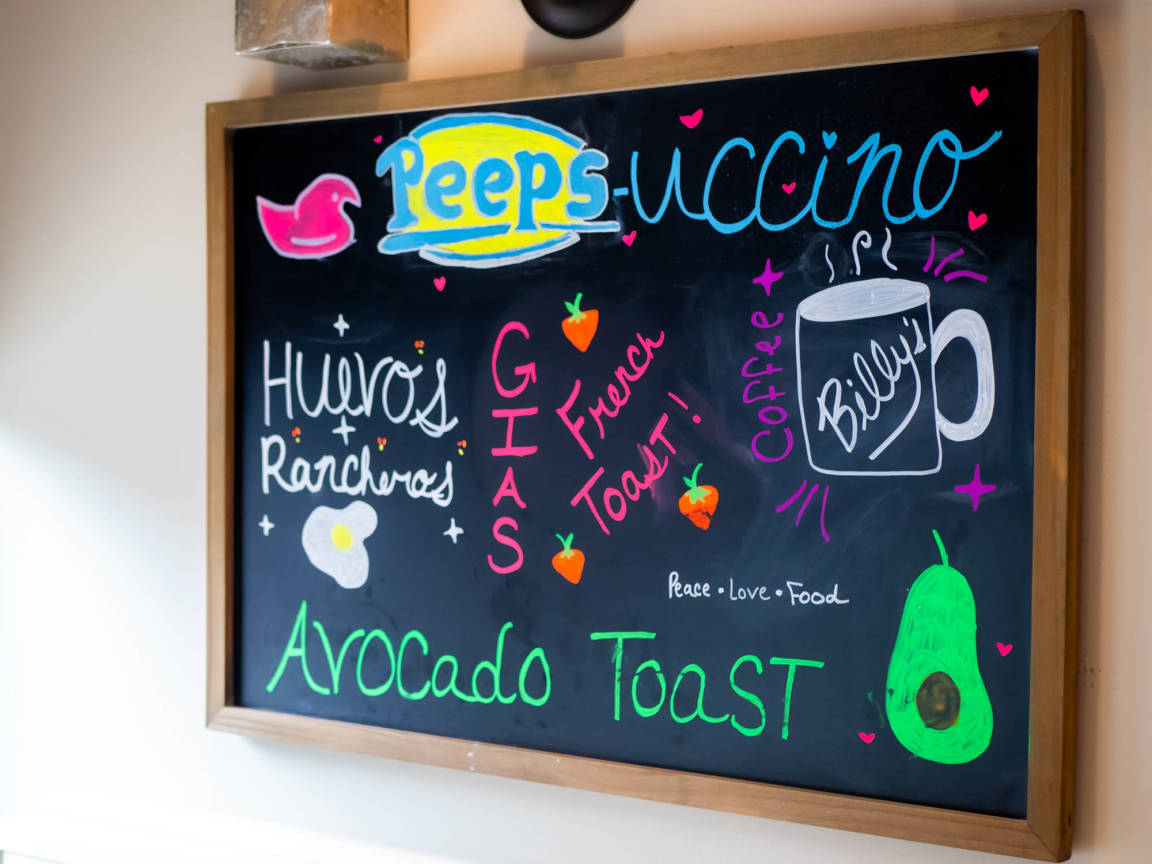 Peeps-uccino
HUEVO'S
RANCHERO'S
GIAS
French
Toast!
Coffee
Billy's
Peace • Love • Food
AVOCADO TOAST